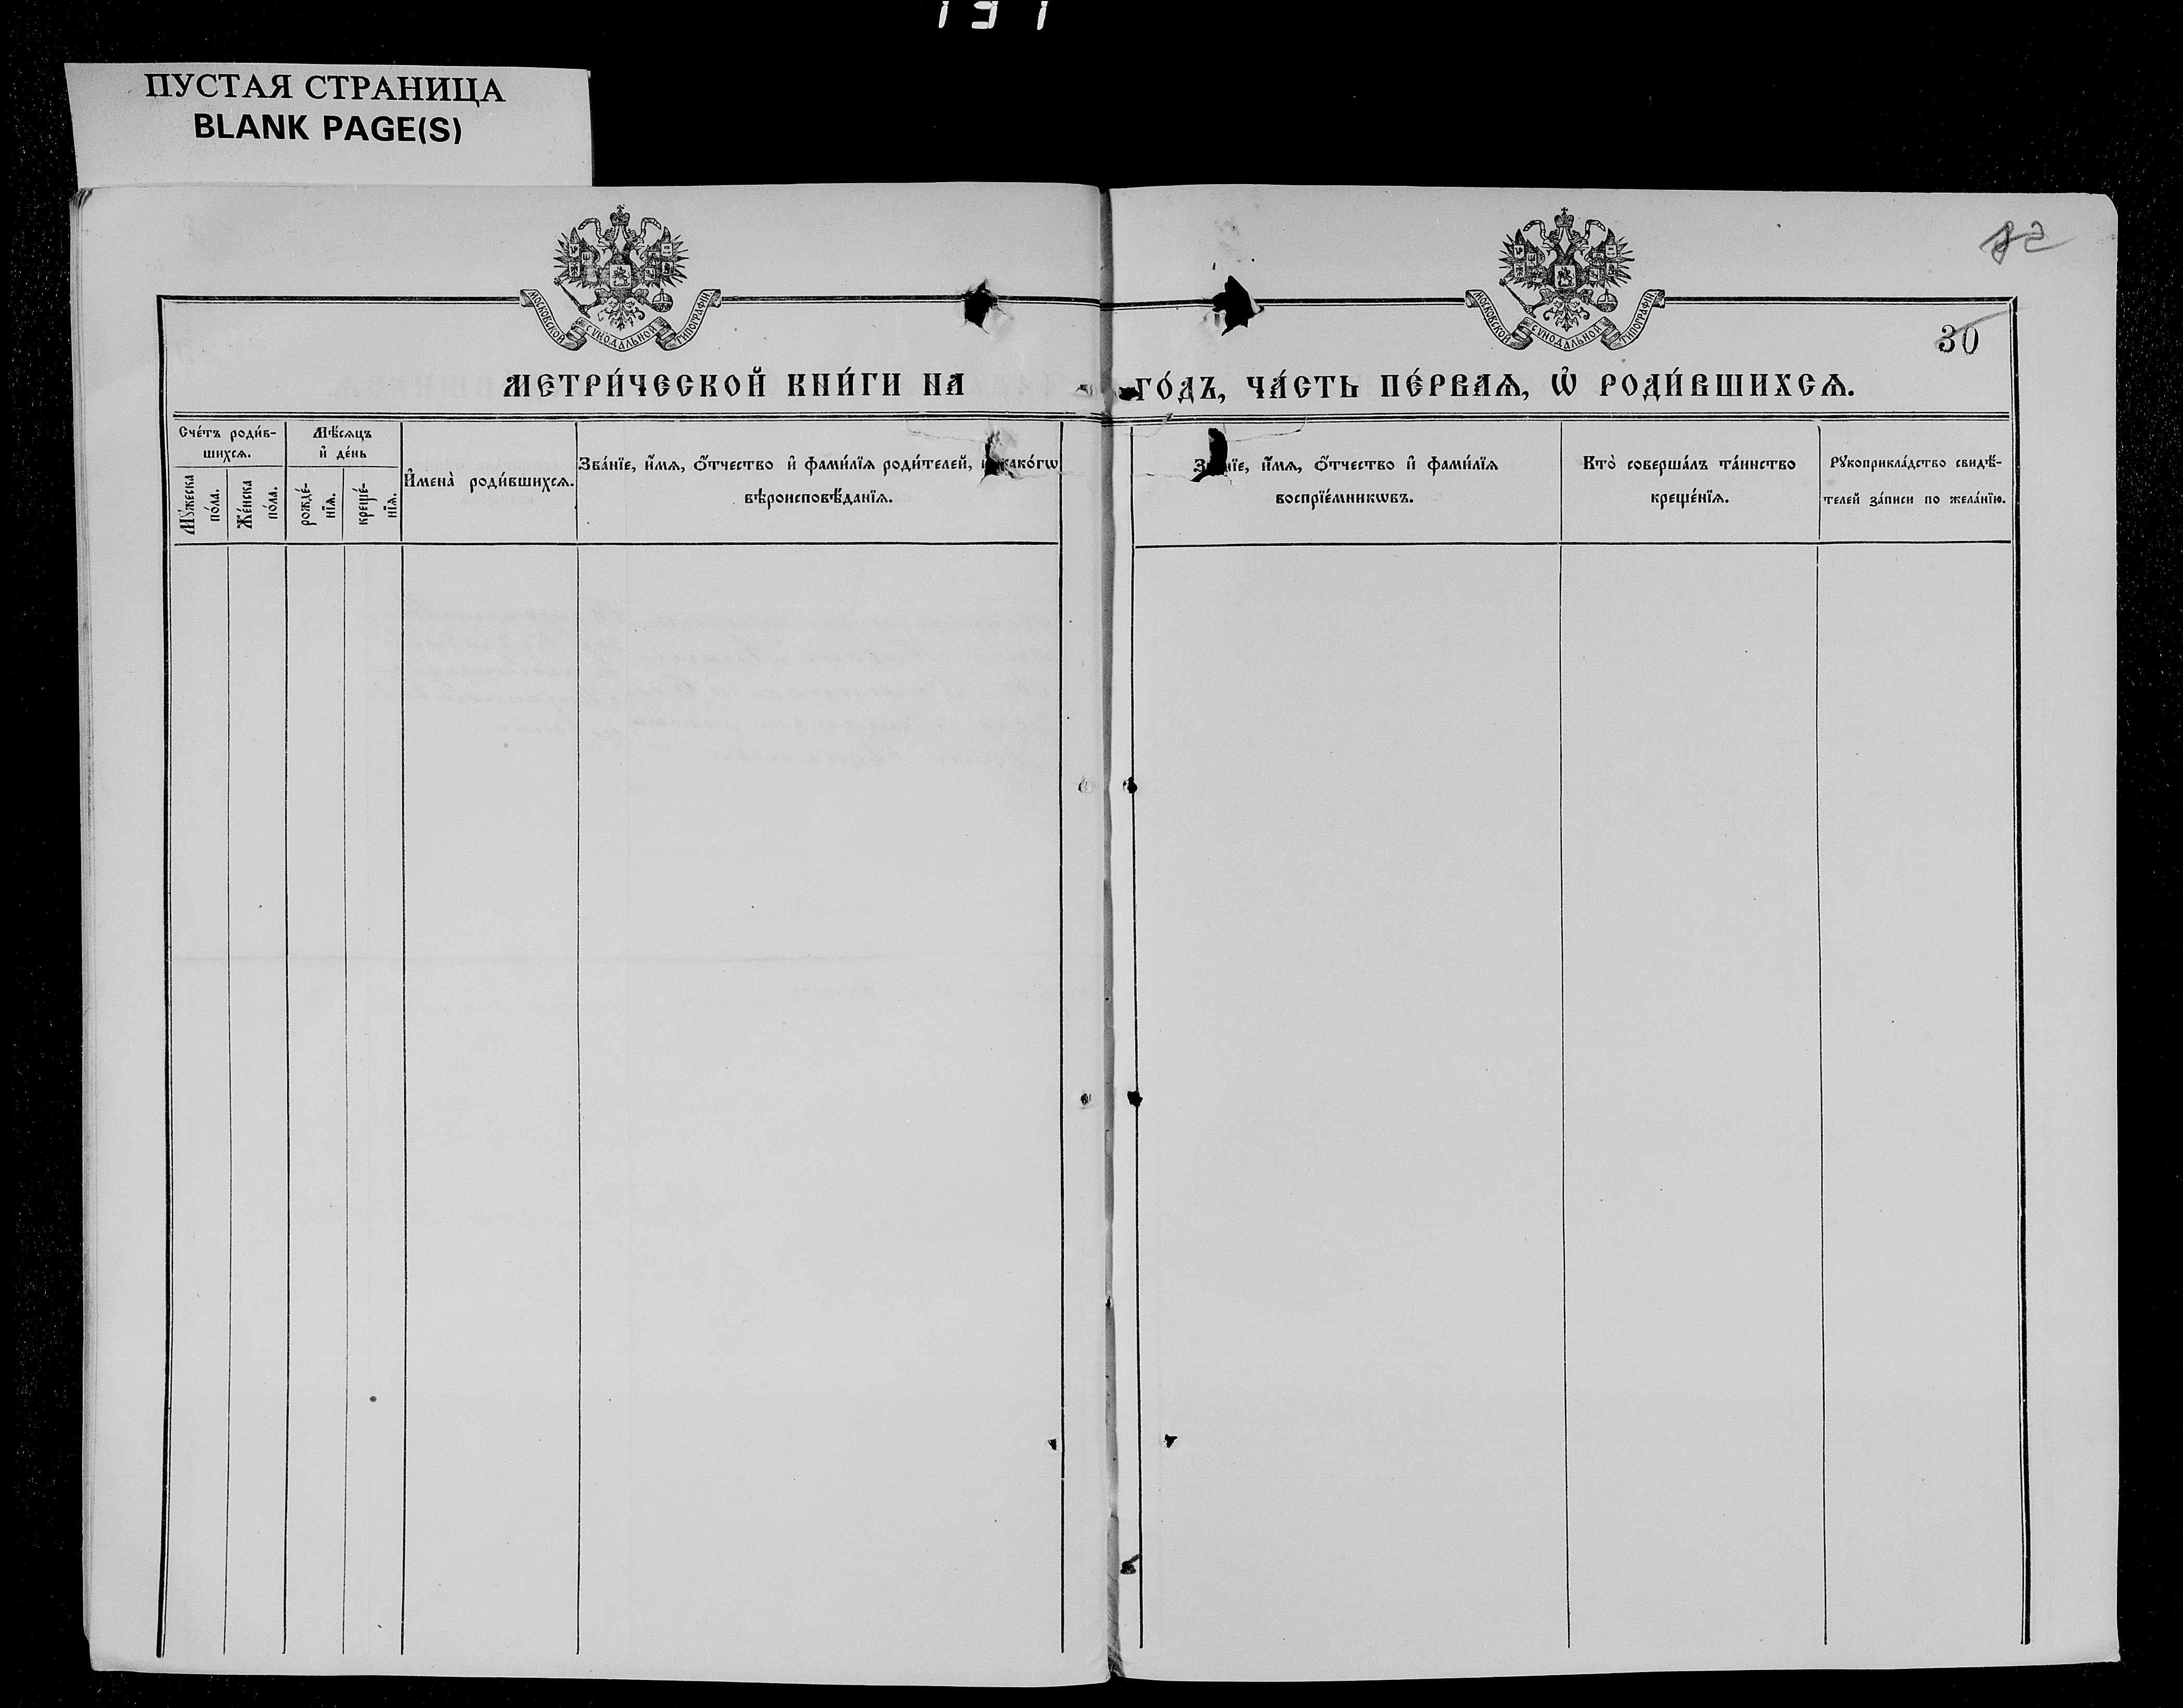 ПУСТАЯ СТРАНИЦА
BLANK PAGE(S)
МОСКОВСКОЙ СѴНОДАЛЬНОЙ ТИПОГРАФІИ
МОСКОВСКОЙ СѴНОДАЛЬНОЙ ТИПОГРАФІИ
30
МЕТРИ́ЧЕСКОЙ КНИ́ГИ НА
ГО́ДЪ, ЧА́СТЬ ПЕ́РВАѦ, Ѡ҆ РОДИ́ВШИХСѦ.
Сче́тъ роди́в-
шихсѧ.
Мꙋ́жеска
по́ла.
Же́нска
по́ла.
Мѣ́сѧцъ
и҆ де́нь
рожде́-
нїѧ.
креще́-
нїѧ.
И҆мена̀ роди́вшихсѧ.
Зва́нїе, и҆́мѧ, ѻ҆́тчество и҆ фами́лїѧ роди́телей, како́гѡ
вѣроисповѣ́данїѧ.
Зва́нїе, и҆́мѧ, ѻ҆́тчество и҆ фами́лїѧ
воспрїе́мникѡвъ.
Кто̀ соверша́лъ та́инство
креще́нїѧ.
Рꙋкоприкла́дство свидѣ́-
телей за́писи по жела́нїю.